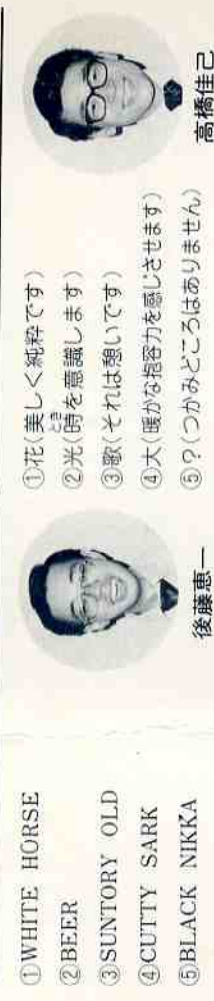 ①WHITE HORSE
②BEER
③SUNTORY OLD
④CUTTY SARK
⑤BLACK NIKKA
後藤恵一
①花(美しく純粋です)
②光(時を意識します)
とき
③歌(それは憩いです)
④大(暖かな抱容力を感じさせます)
⑤?(つかみどころはありません)
高橋佳己